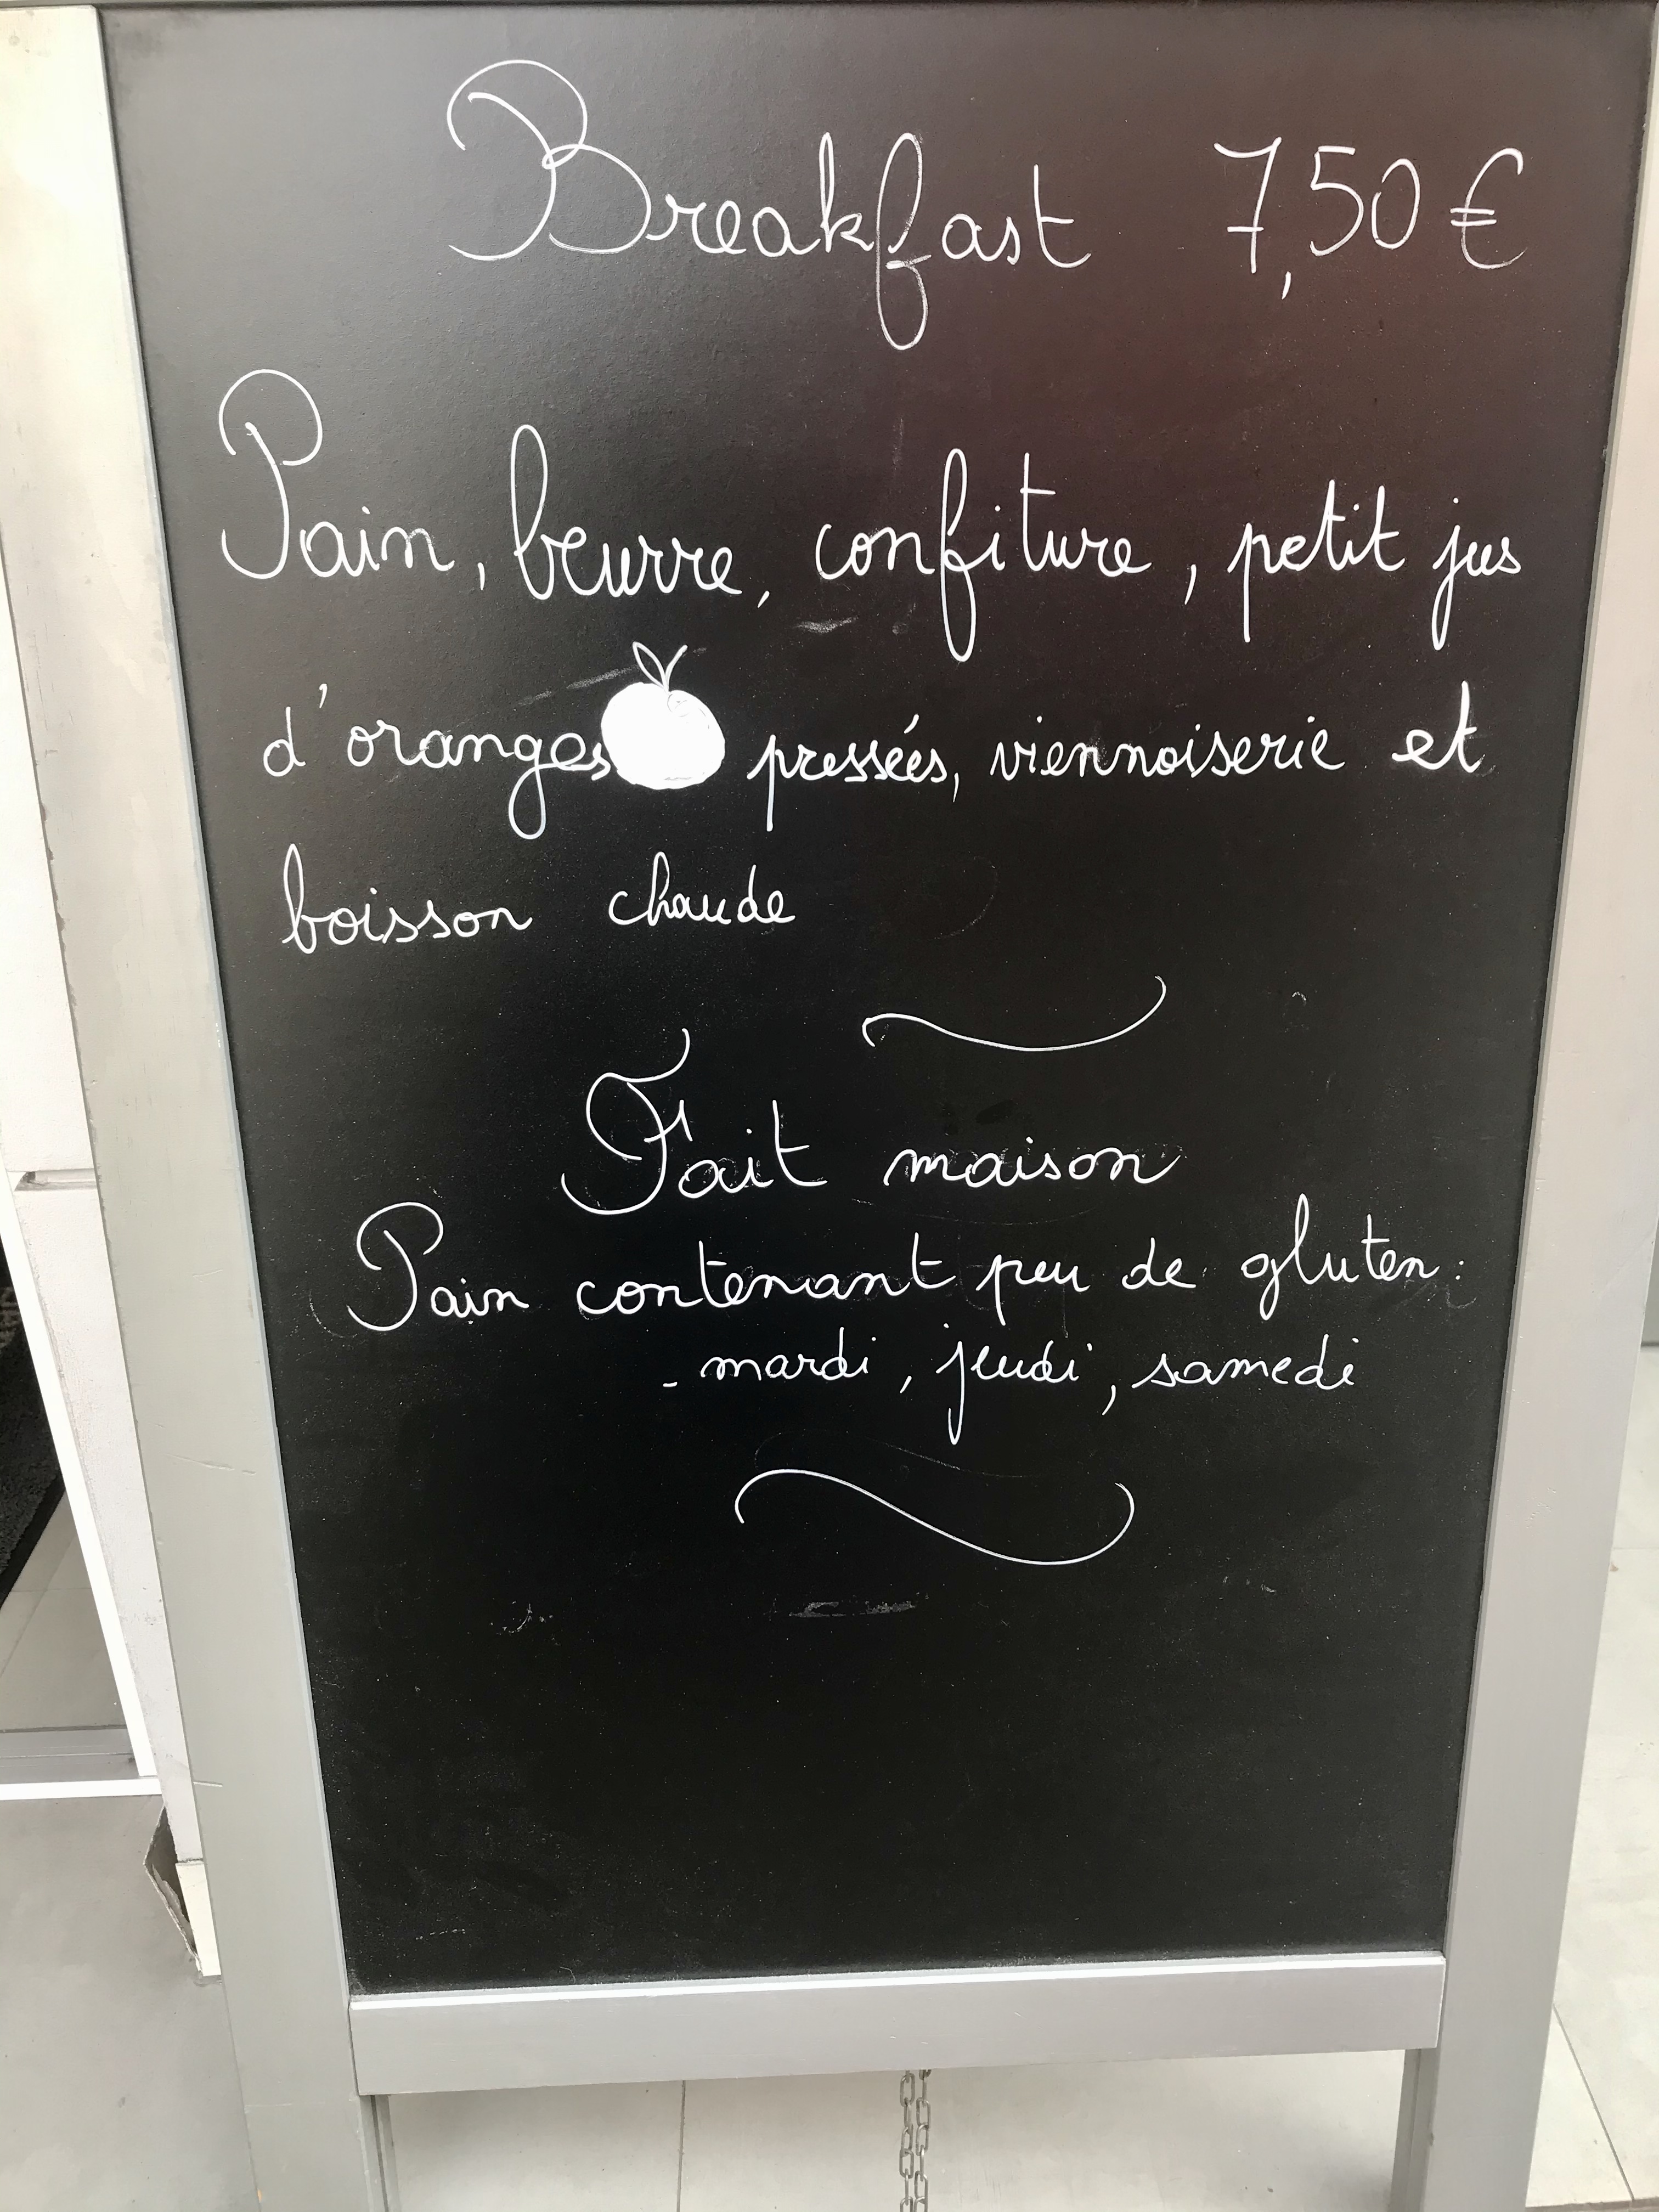 Breakfast 7,50 €
Pain, beurre, confiture, petit jus
d'oranges pressées, viennoiserie et
boisson chaude
Fait maison
Pain contenant peu de gluten :
- mardi, jeudi, samedi